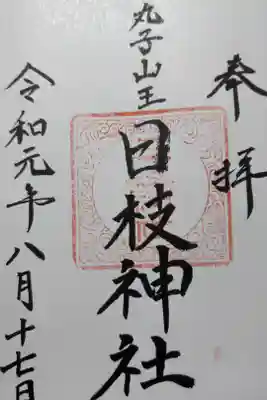 奉拝
丸子山王
日枝神社
令和元年八月十七日